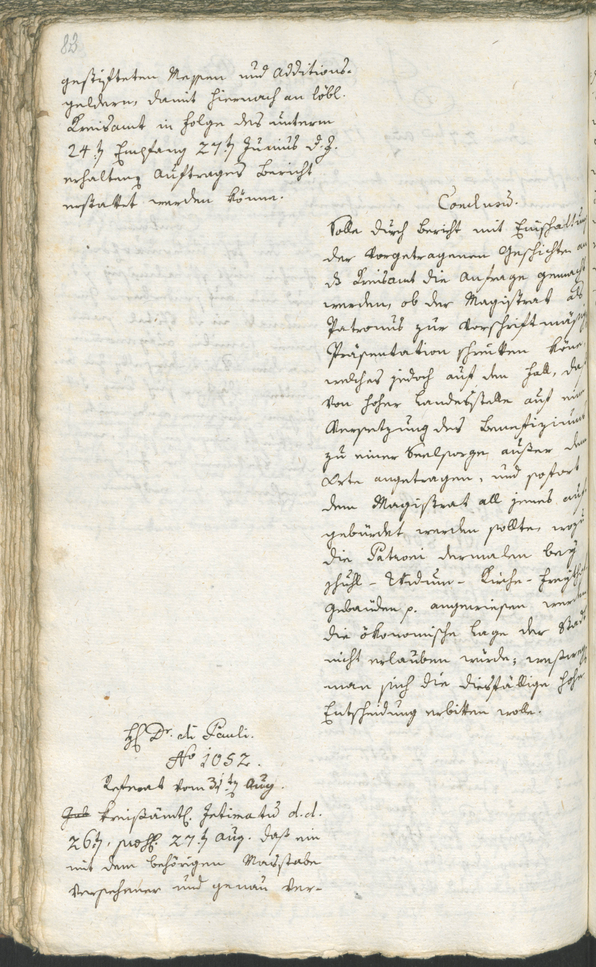 83
gestifteten Messen und Additions-
geldern, damit hiernach an löbl.
Kreisamt in Folge des unterm
24ten Empfang 27ten Junius d. J.
erhaltenen Auftrages Bericht
erstattet werden könne.
Conclusum.
Solle durch Bericht mit Einschaltung
der vorgetragenen Geschichte an
das Kreisamt die Anfrage gemacht
werden, ob der Magistrat als
Patronus zur vorschriftmäßigen
Präsentation schreiten könne,
welches jedoch auf den Fall, da
von hoher Landesstelle auf eine
Versetzung des Benefiziums
zu einer Seelsorge außer dem
Orte angetragen, und sofort
dem Magistrat all jenes auf-
gebürdet werden sollte, wozu
die Patroni dermalen bey
Schuhl- Widum- Kirche- Freythof
Gebäuden p. angewiesen werden
die ökonomische Lage der Stadt
nicht erlauben würde; weßwegen
man sich die diesfällige hohe
Entscheidung erbitten wolle.
H. Dr. di Pauli.
No 1052.
Referat vom 31ten Aug.
kreisämtl. Intimatum d. d.
26ten, 27ten Aug. daß ein
mit dem behörigen Maasstabe
versehener und genau ver-